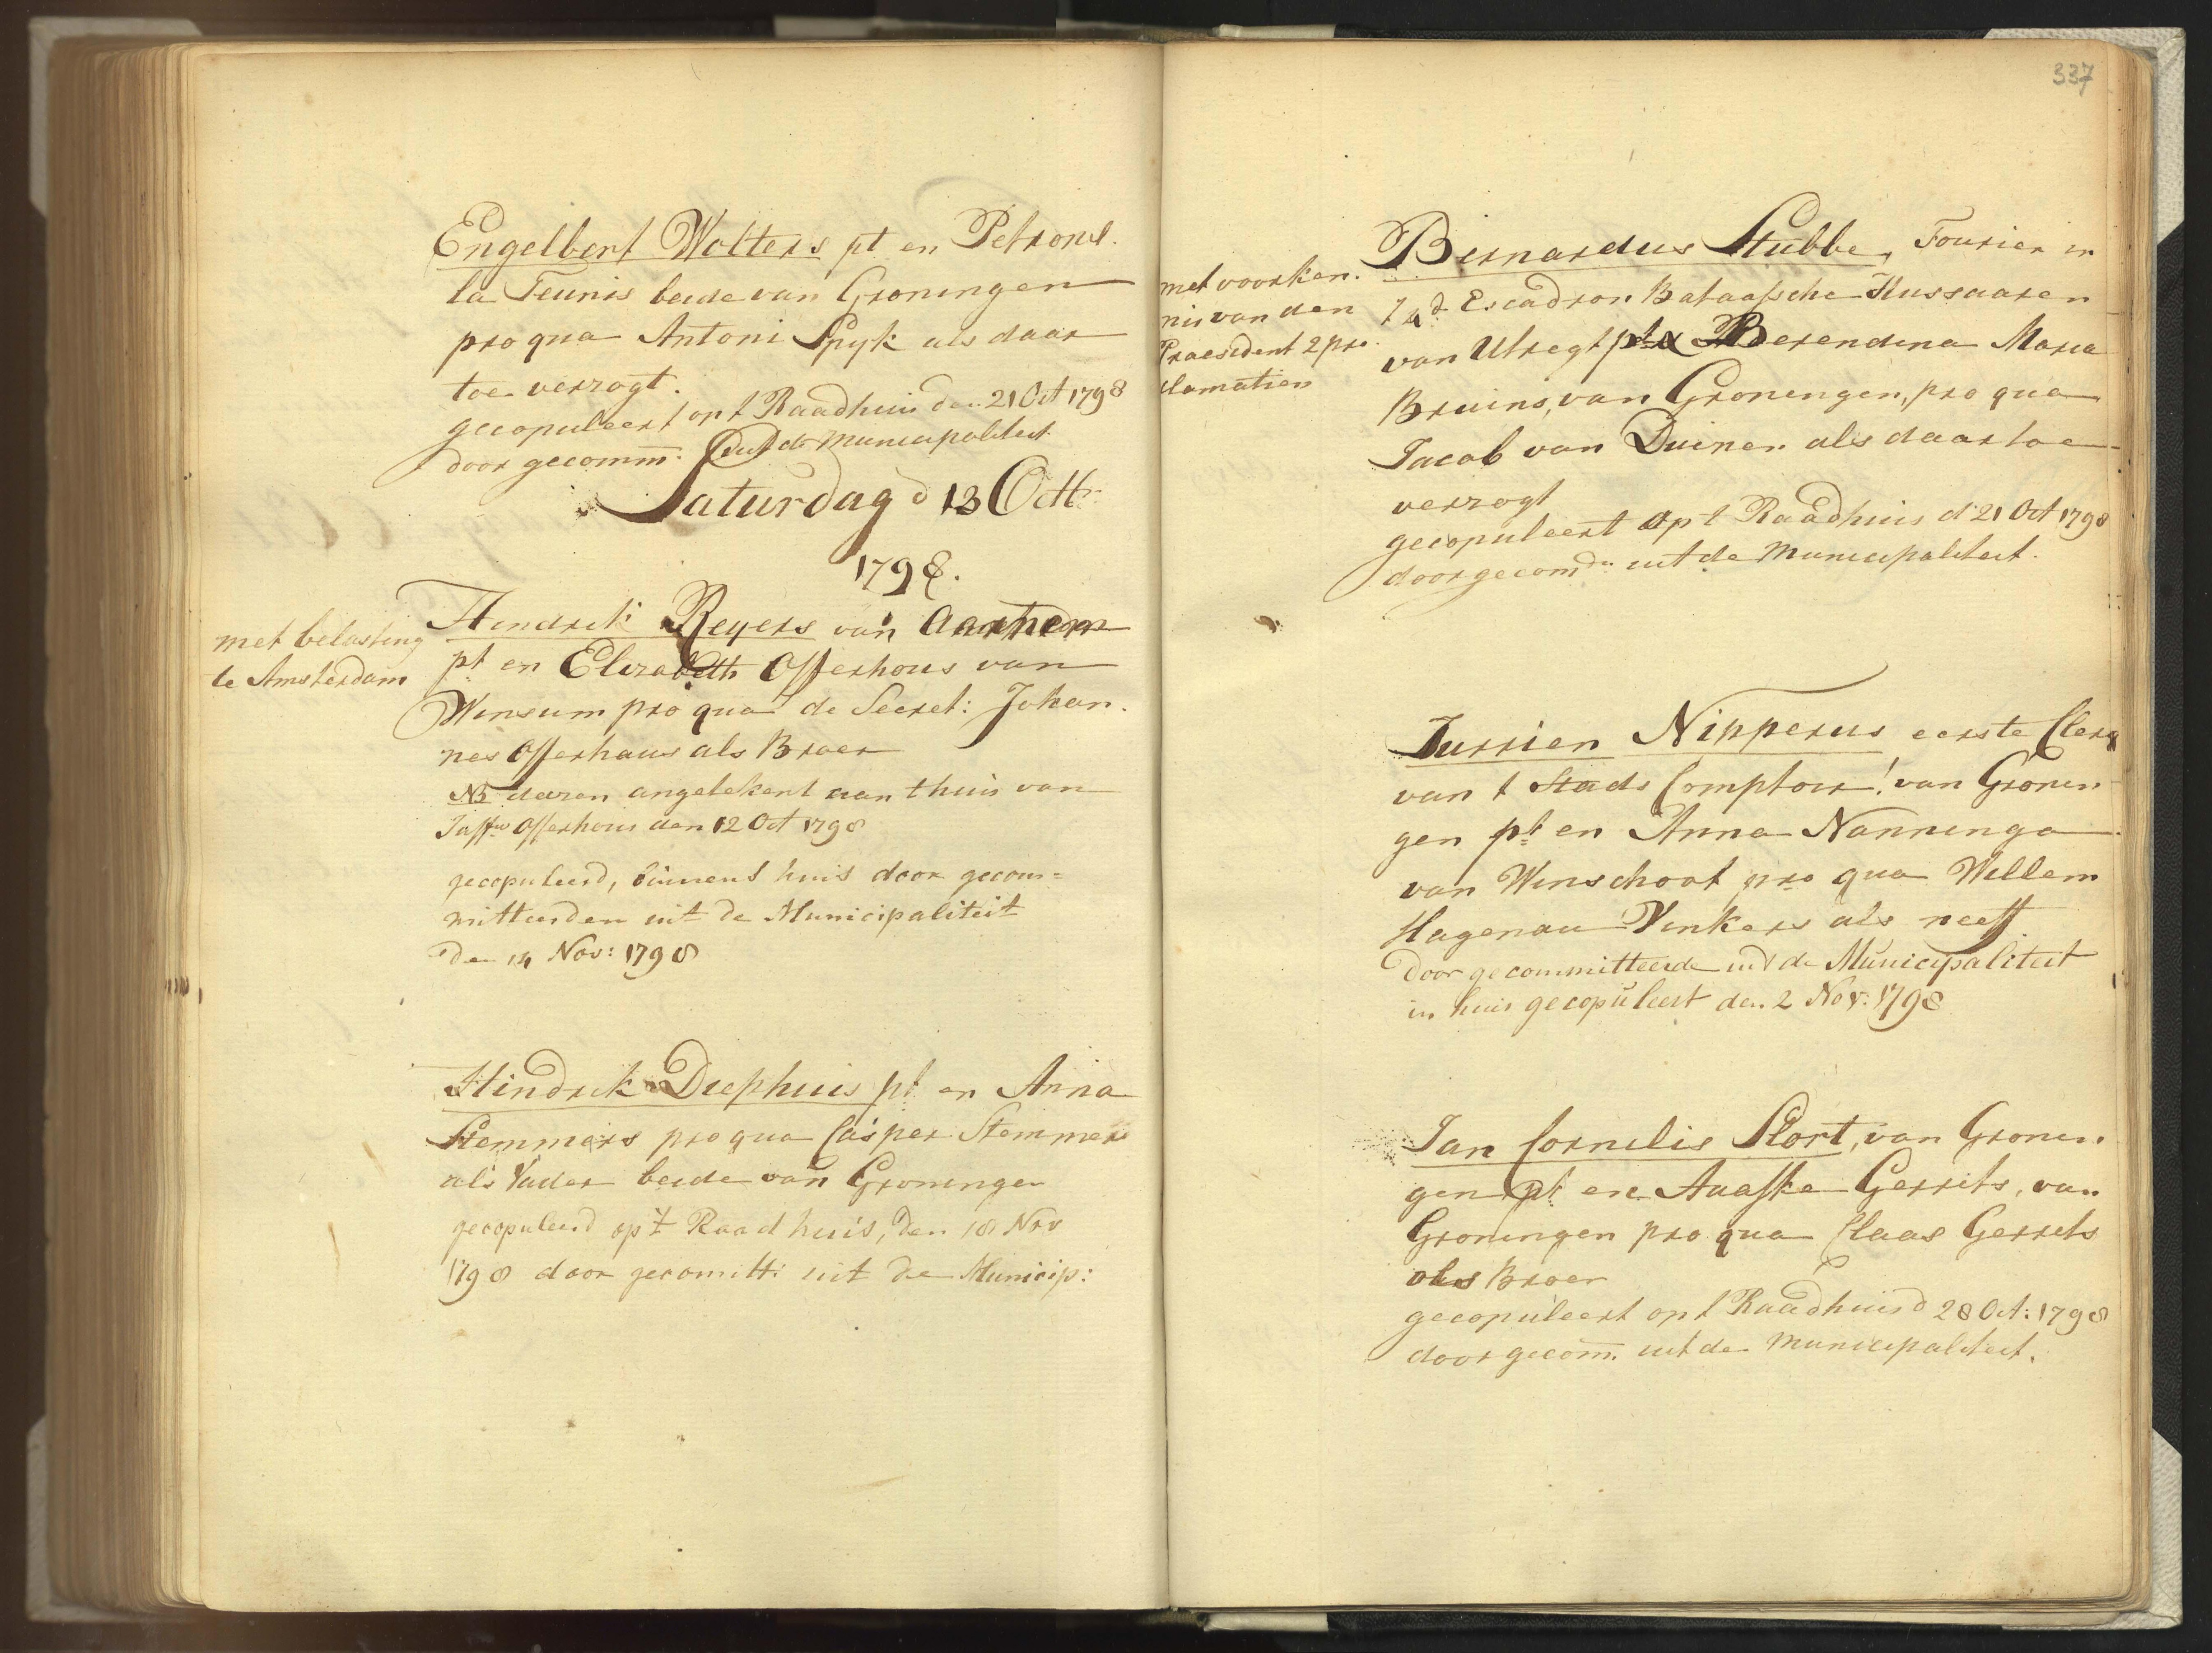 Engelbert Wolters pt en Petronel.
la Teunis beide van Groningen
pro qua Antoni Spyk als daar
toe verzogt.
gecopuleert op t Raadhuis den 21 Oct 1798
door gecomm. uit de Municipaliteit
Saturdag d 13 Octr
1798.
met belasting
te Amsterdam
Hendrik Reyers van Aarnhem
pt en Elizabeth Offerhous van
Winsum pro qua de Secret: Johan.
nes Offerhaus als Broer
NB deezen angetekent aan t huis van
Juffw Offerhous den 12 Oct 1798
gecopuleerd, binnens huis door gecom=
mitteerden uit de Municipaliteit
den 14 Nov: 1798
Hindrik Diephuis pt en Anna
Stemmers pro qua Casper Stemmers
als Vader beide van Groningen
gecopuleerd op 't Raadhuis, den 18 Nov
1798 door gecomitt: uit de Municip:
337
met voorken.
nis van den
Praesident 2 pro
clamatien
Bernardus Stubbe, Fourier in
Escadron Bataafsche Hussaaren
van Utregt pt & Berendina Maria
Bruins, van Groningen, pro qua
Jacob van Duinen als daartoe
verzogt
gecopuleert op t Raadhuis d 21 Oct 1798
door gecomdn uit de Municipaliteit.
Jurrien Nipperus eerste Clerq
van t Stads Comptoir! van Gronin
gen pt en Anna Nanninga
van Winschoot pro qua Willem
Hagenau Vinkers als neeff
Door gecommitteerde uit de Municipaliteit
in huis gecopuleert den 2 Nov: 1798
Jan Cornelis Slort, van Gronin
gen pt en Aaafke Gerrits, van
Groningen pro qua Claas Gerrits
als Broer
gecopuleert op t Raadhuis d 28 Oct: 1798
door gecom. uit de Municipaliteit.